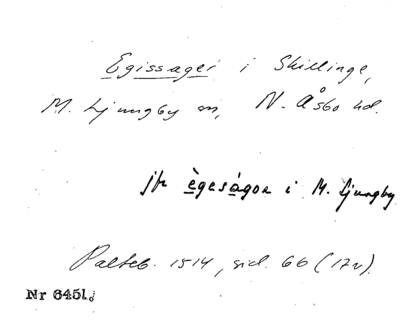 Egissagei i Skillinge,
M. Ljungby sn, N. Åsbo hd.
jfr ègeságoa i M. Ljungby
Palteb. 1514, sid. 66 (17v).
Nr 6451.